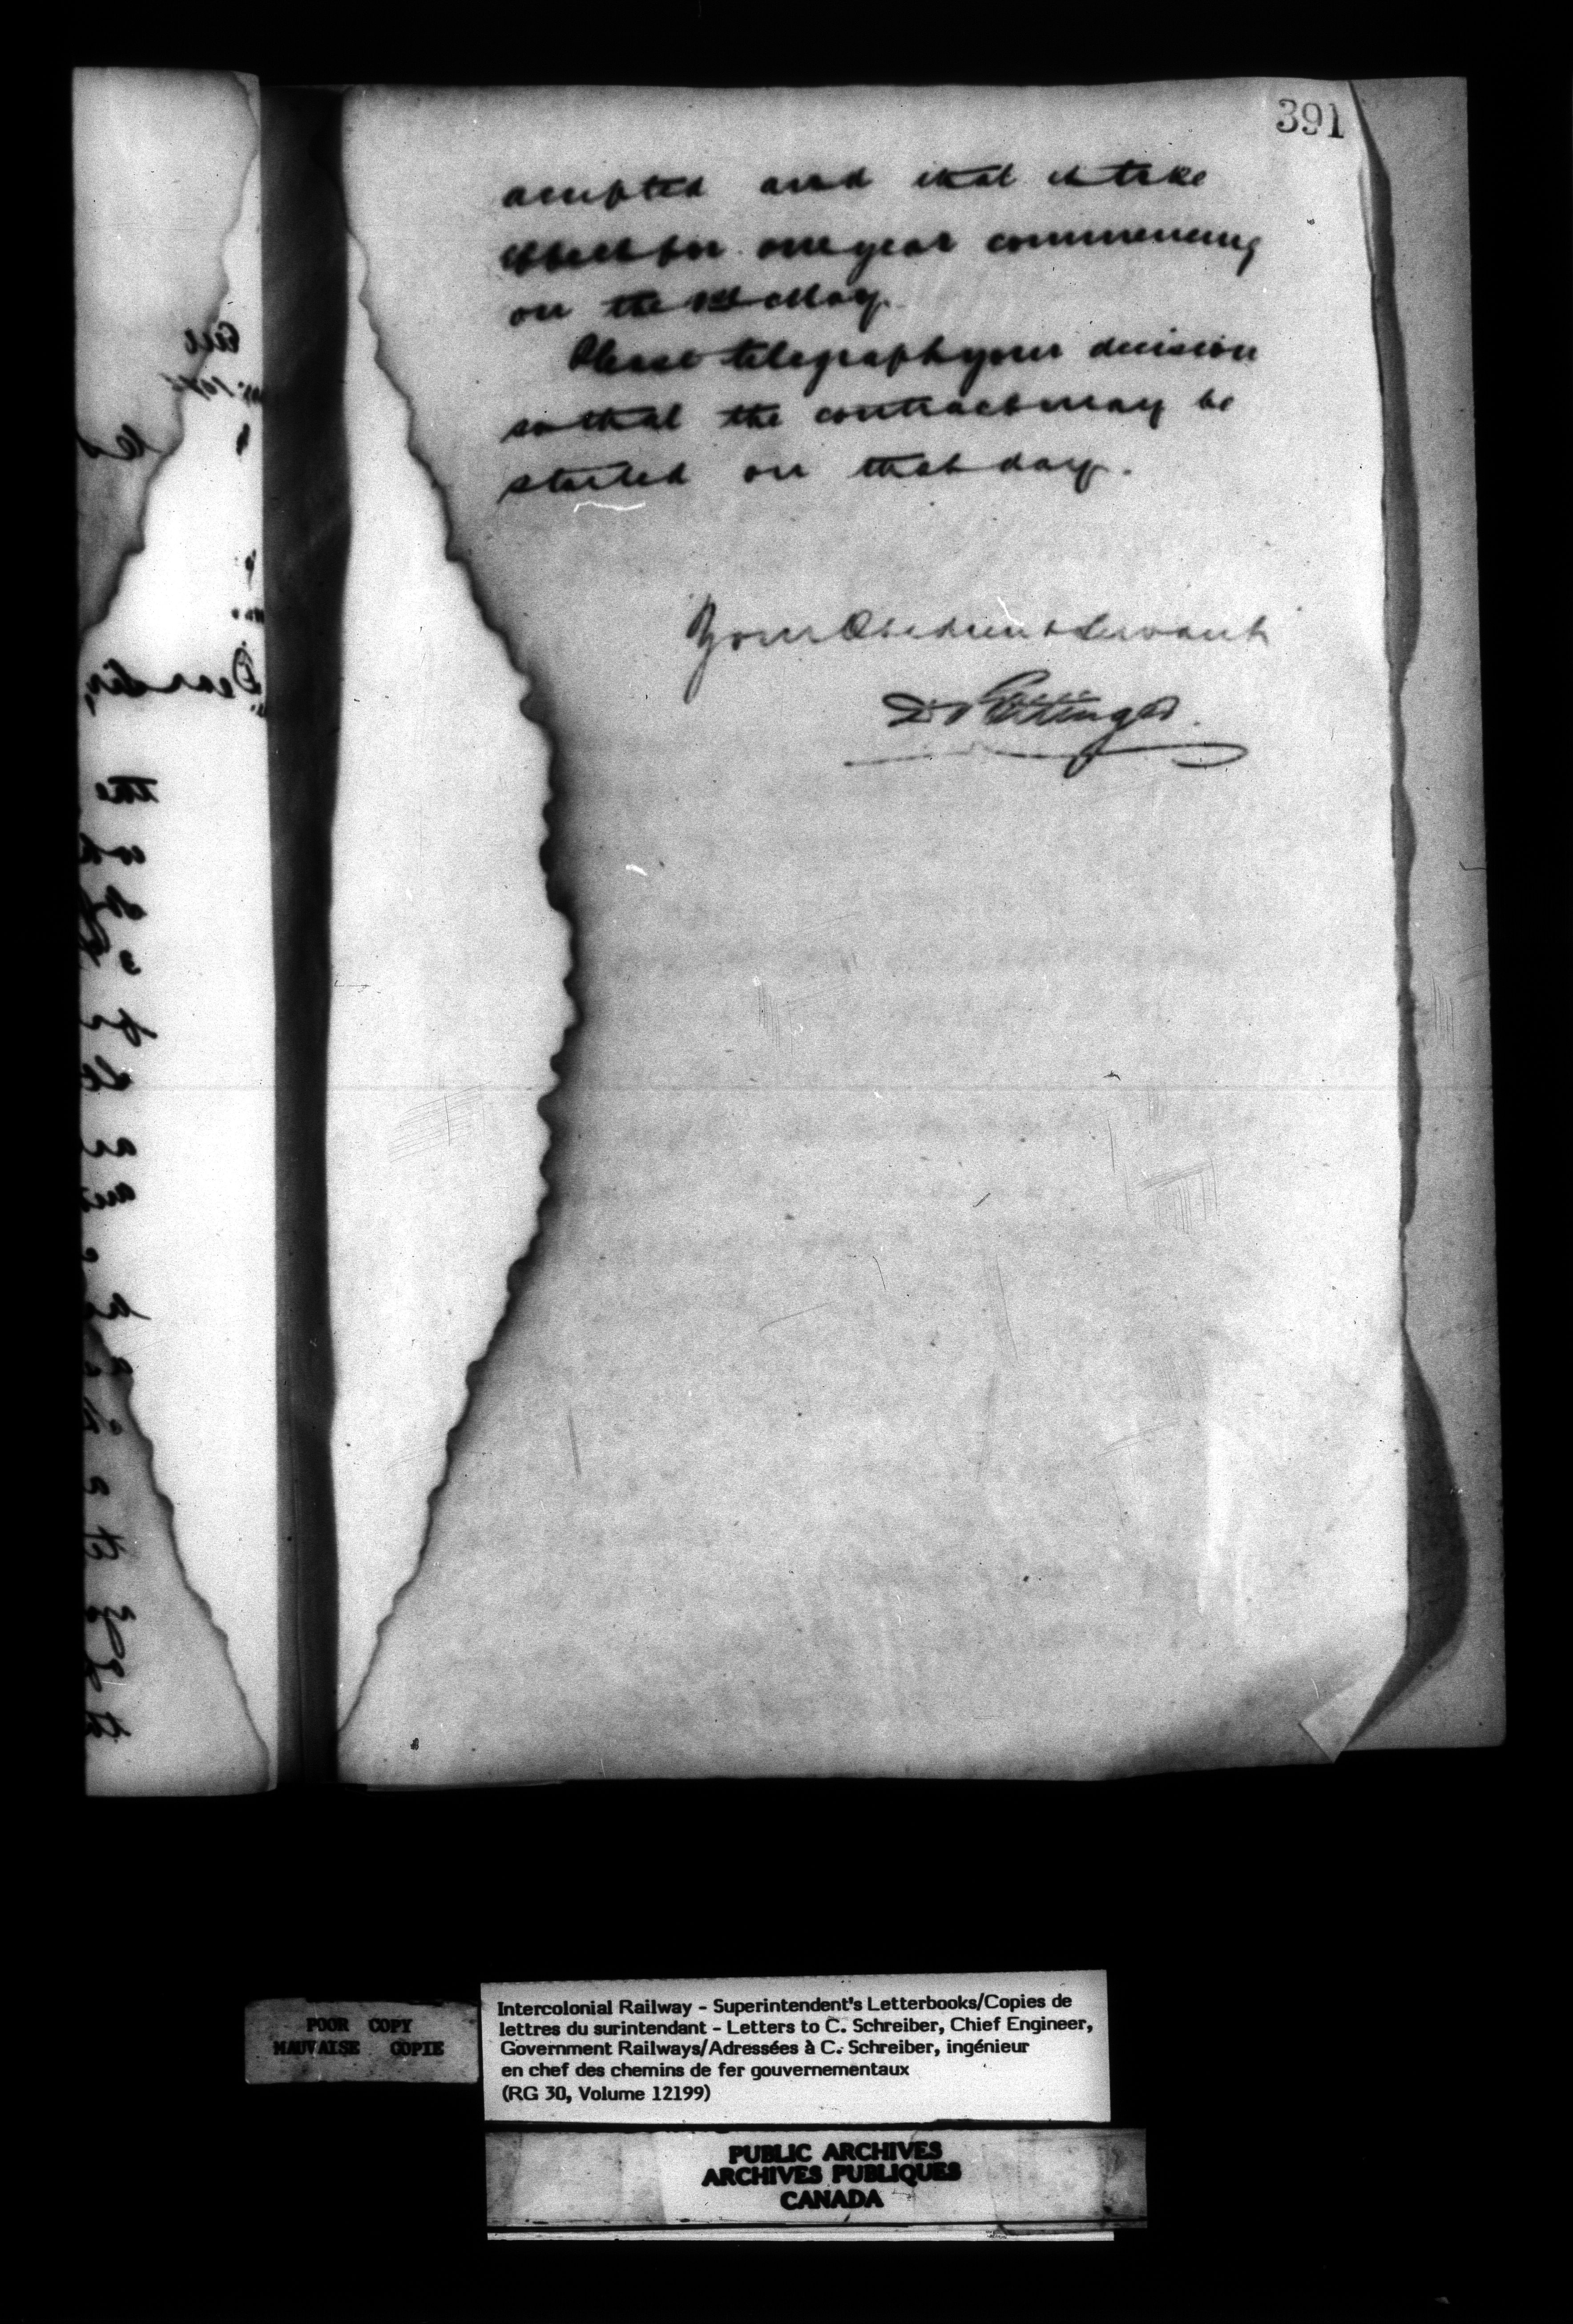 391
accepted and that it take
effect for one year commencing
on the 1st May.
Please telegraph your decision
so that the contract may be
started on that day.
Your Obedient Servant
D Pottinger
Dear Sir,
the
POOR COPY
MAUVAISE COPIE
Intercolonial Railway - Superintendent's Letterbooks/Copies de
lettres du surintendant - Letters to C. Schreiber, Chief Engineer,
Government Railways/Adressées à C. Schreiber, ingénieur
en chef des chemins de fer gouvernementaux
(RG 30, Volume 12199)
PUBLIC ARCHIVES
ARCHIVES PUBLIQUES
CANADA